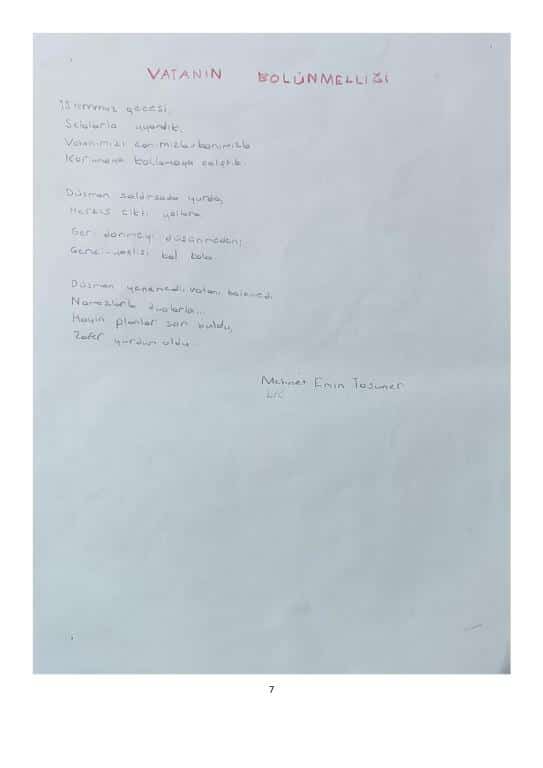 VATANIN BÖLÜNMELLİĞİ
15 Temmuz gecesi,
Selalarla uyandık,
Vatanımızı canımızla kanımızla
Korumaya kollamaya çalıştık.
Düşman saldırsada yurda,
Herkes çıktı yollara
Geri dönmeyi düşünmeden,
Genci yaşlısı kol kola
Düşman yenemedi vatanı bölemedi
Namazlarla dualarla...
Hayin planlar son buldu,
Zafer yurdun oldu.
Mehmet Emin Taşuner
7